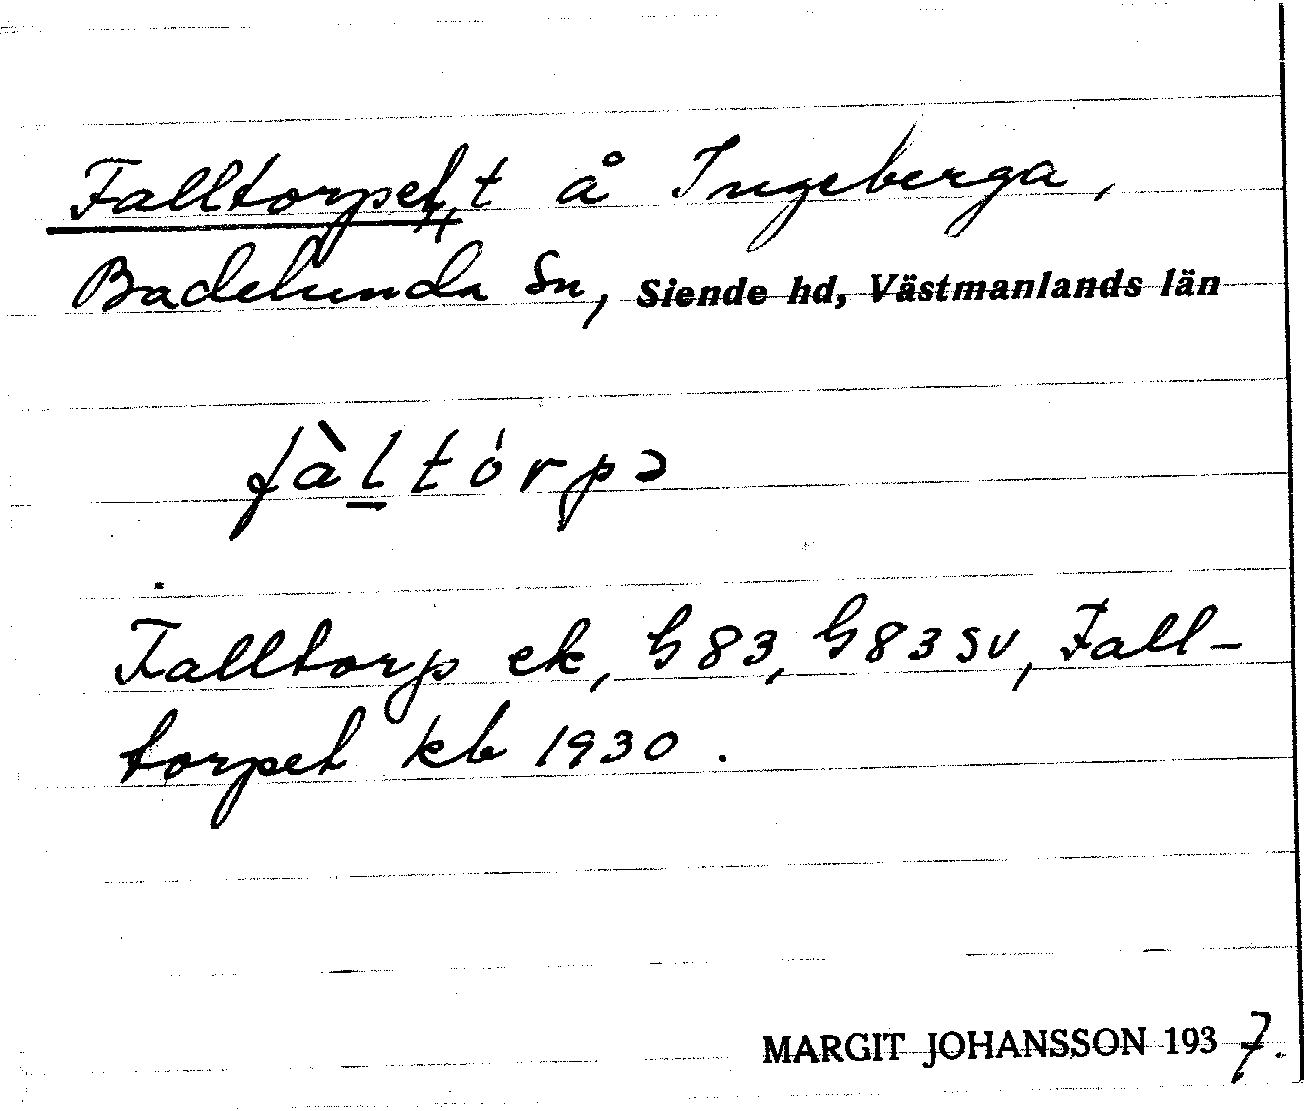 Falltorpet, t å Ingeberga,
Badelunda Sn, Siende hd, Västmanlands län
fàl̲tórpə
Falltorp ek, G83, G83SV, Fall-
torpet kb 1930.
MARGIT JOHANSSON 1937.